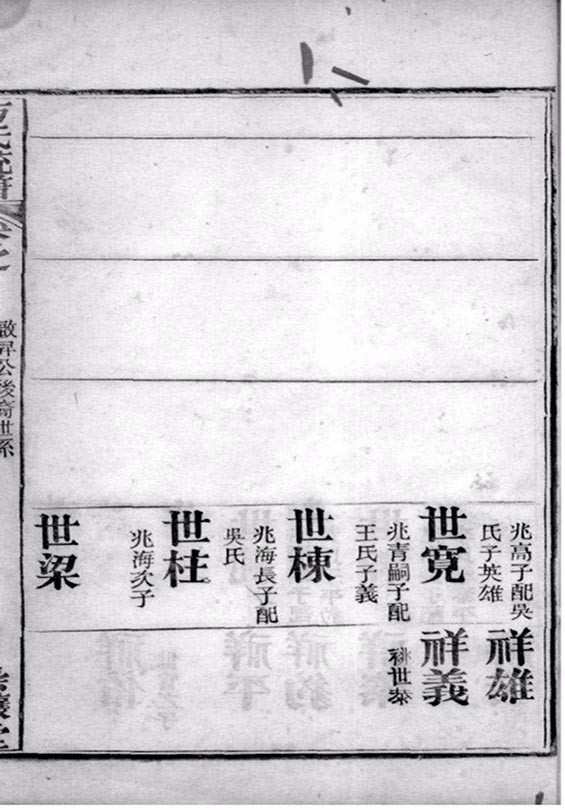 兆高子配吳
氏子英雄
世寬
兆青嗣子配
王氏子義
世棟
兆海長子配
吳氏
世柱
兆海次子
世梁
祥雄
祥義
世泰
昇公後裔世系